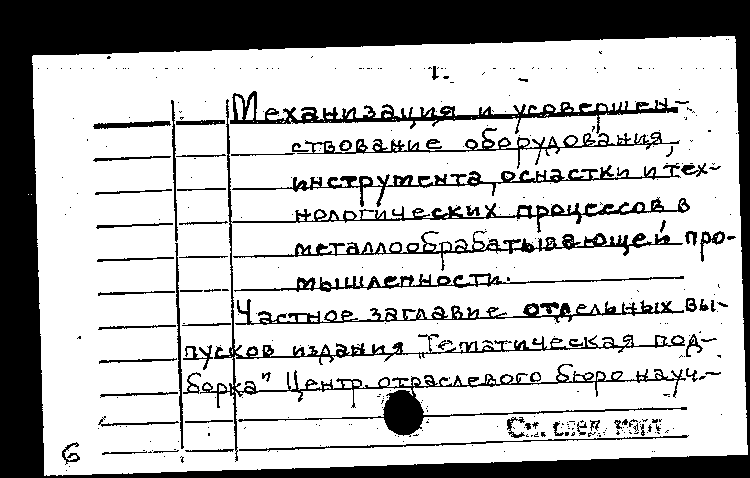 1.
Механизация и усовершен-
ствование оборудования,
инструмента, оснастки и тех-
нологических процессов в
металлообрабатывающей про-
мышленности.
Частное заглавие отдельных вы-
пусков издания „Тематическая под-
борка" Центр. отраслевого бюро науч.-
См. след. карт.
6